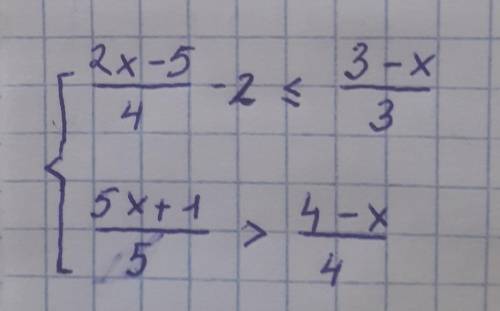 { (2x-5)/4 -2 ≤ (3-x)/3
(5x+1)/5 > (4-x)/4